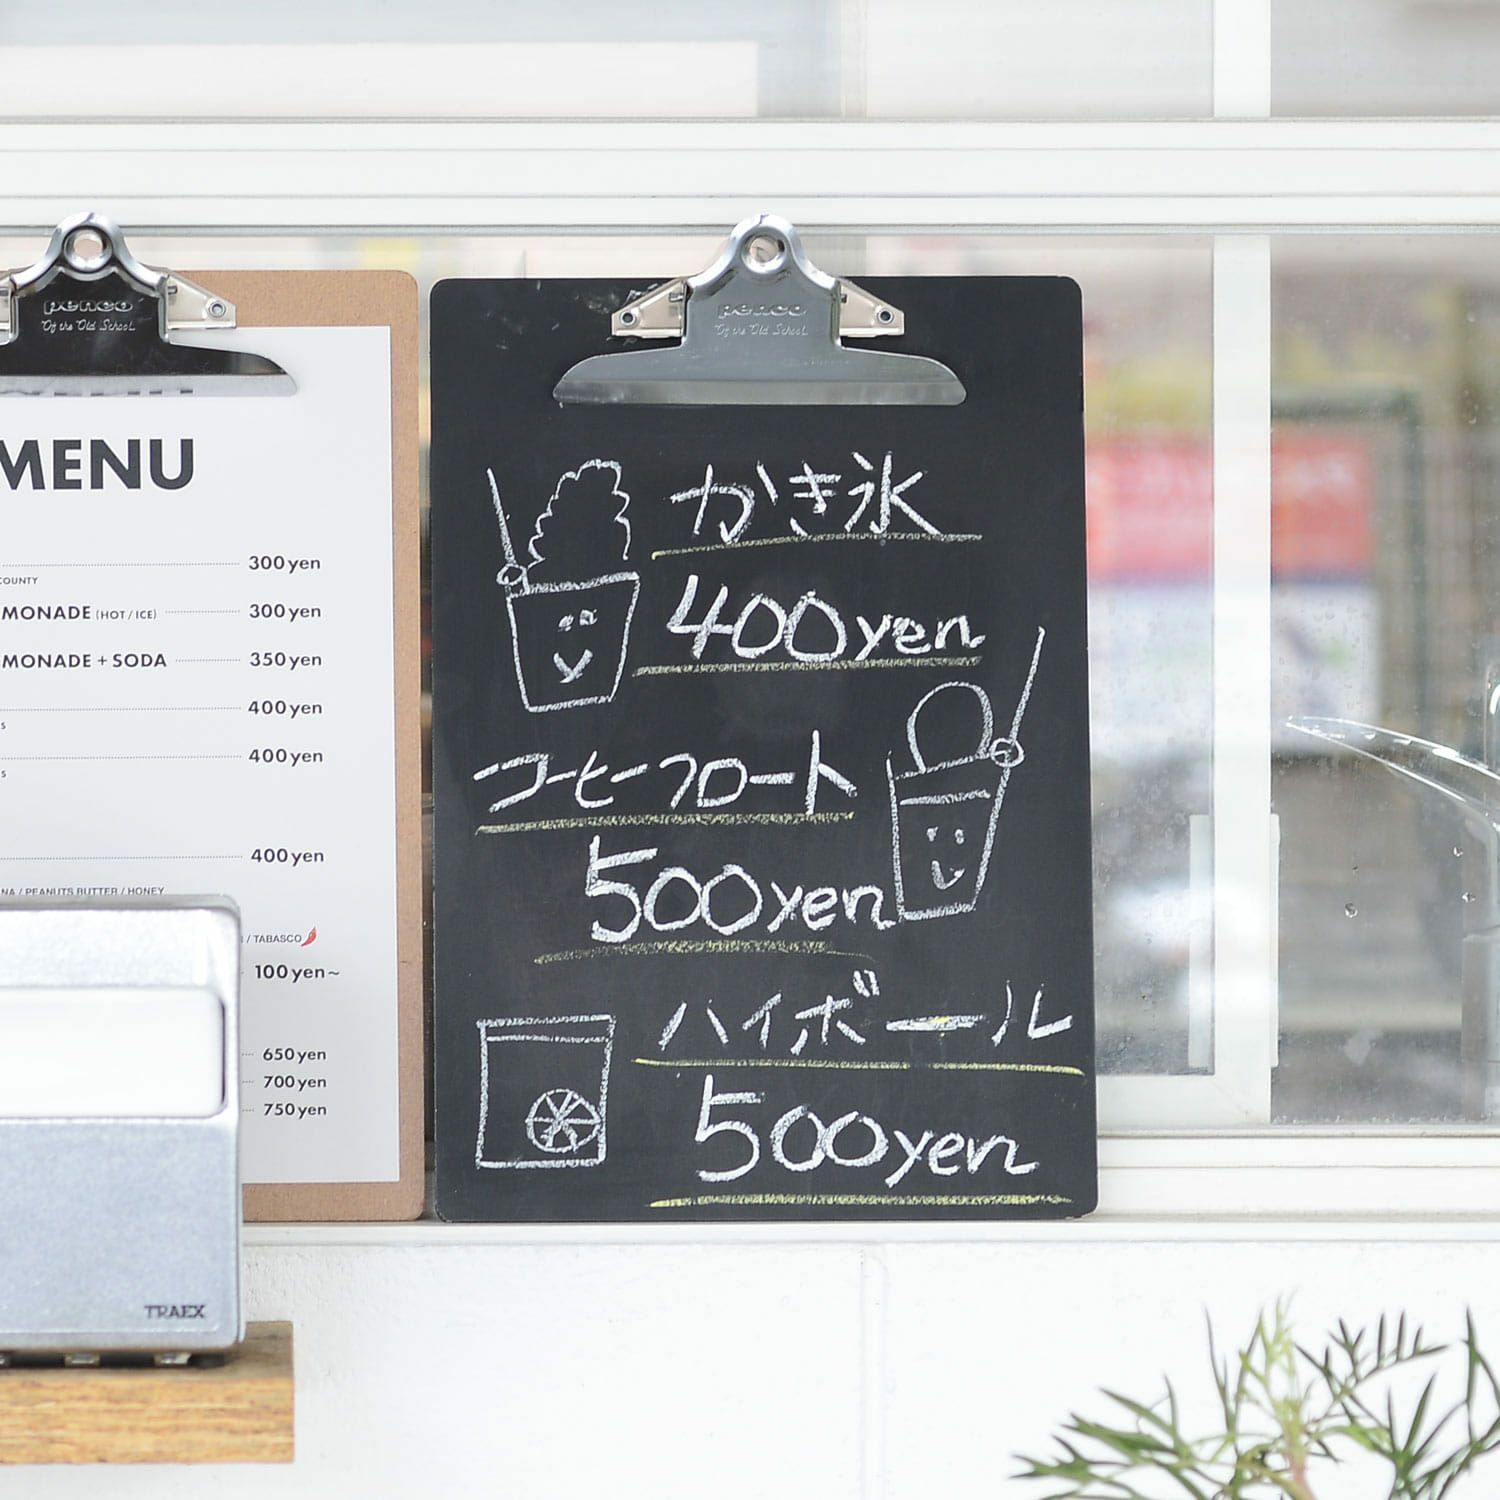 penco
Of the Old School.
MENU
300yen
COUNTY
MONADE (HOT / ICE) 300yen
MONADE + SODA 350yen
400yen
s
400yen
s
400yen
NA / PEANUTS BUTTER / HONEY
/ TABASCO
100yen~
650yen
700yen
750yen
TRAEX
penco
Of the Old School.
かき氷
400yen
コーヒーフロート
500yen
ハイボール
500yen